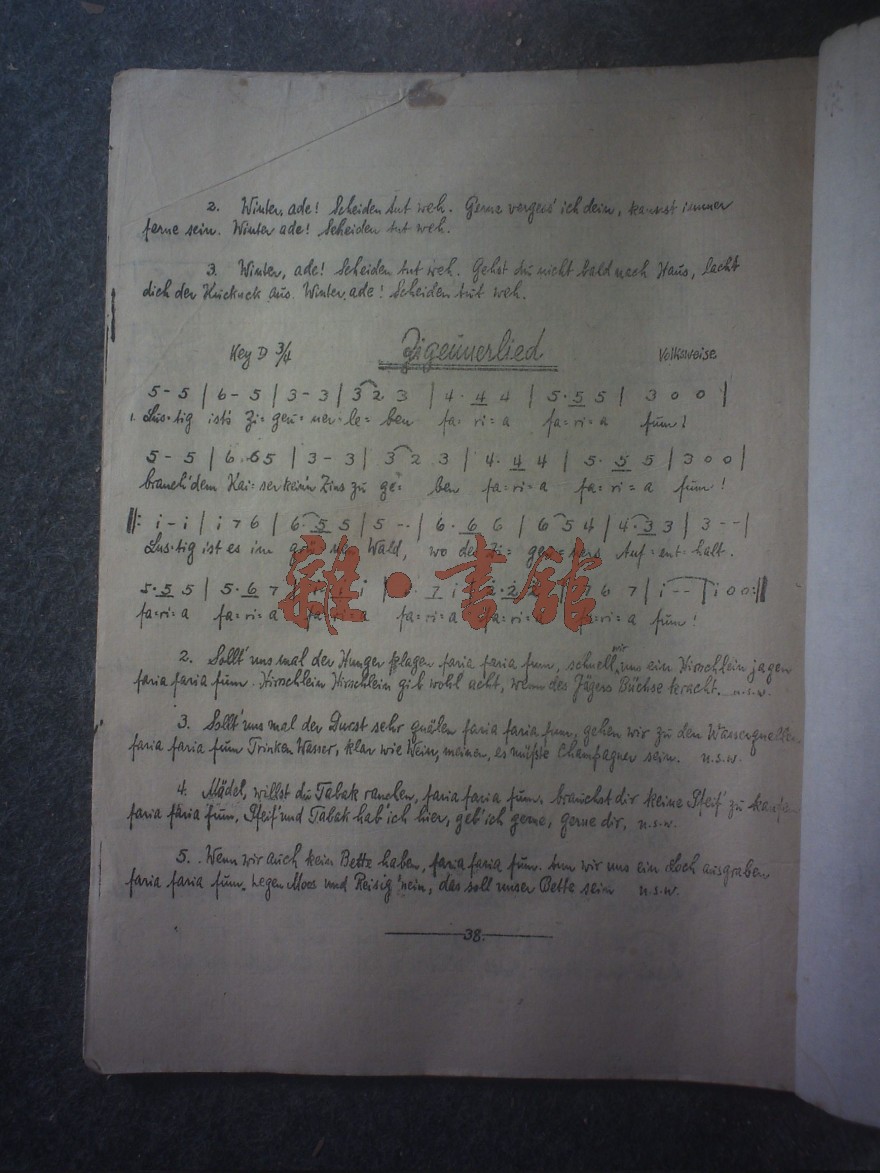 2. Winter, ade! Scheiden tut weh. Gerne vergess' ich dein, kannst immer
ferne sein. Winter ade! Scheiden tut weh.
3. Winter, ade! Scheiden tut weh. Gehst du nicht bald nach Haus, lacht
dich der Kuckuck aus. Winter, ade! Scheiden tut weh.
Key D 3/4 Zigeunerlied Volksweise
5 - 5 | 6 - 5 | 3 - 3 | 3 2 3 | 4. 4 4 | 5. 5 5 | 3 0 0 |
1. Lus=tig ist's Zi=geu=ner=le=ben fa=ri=a fa=ri=a fum!
5 - 5 | 6. 65 | 3 - 3 | 3 2 3 | 4. 4 4 | 5. 5 5 | 3 0 0 |
brauch' dem Kai=ser kein'n Zins zu ge=ben fa=ri=a fa=ri=a fum!
||: i - i | i 7 6 | 6. 5 5 | 5 -. | 6. 6 6 | 6 5 4 | 4. 3 3 | 3 - - |
Lus=tig ist es im grü=nen Wald, wo des Zi=geu=ners Auf=ent=halt.
5. 5 5 | 5. 6 7 | i | 7 i | i. 2 2 | 7 6 7 | i - - | i 0 0 :||
fa=ri=a fa=ri=a fa=ri=a fa=ri=a fa=ri=a fa=ri=a fum!
雜·書館
2. Sollt' uns mal der Hunger plagen faria faria fum, schnell wir uns ein Hirschlein jagen
faria faria fum. Hirschlein Hirschlein gib wohl acht, wenn des Jägers Büchse kracht. u.s.w.
3. Sollt' uns mal der Durst sehr quälen faria faria fum, gehen wir zu den Wasserquellen,
faria faria fum Trinken Wasser, klar wie Wein, meinen, es müßte Champagner sein. u.s.w.
4. Mädel, willst du Tabak rauchen, faria faria fum. brauchst dir keine Pfeif' zu kaufen
faria faria fum, Pfeif' und Tabak hab' ich hier, geb' ich gerne, gerne dir, u.s.w.
5. Wenn wir auch kein Bette haben, faria faria fum. tun wir uns ein Loch ausgraben
faria faria fum. Legen Moos und Reisig 'nein, das soll unser Bette sein u.s.w.
38.